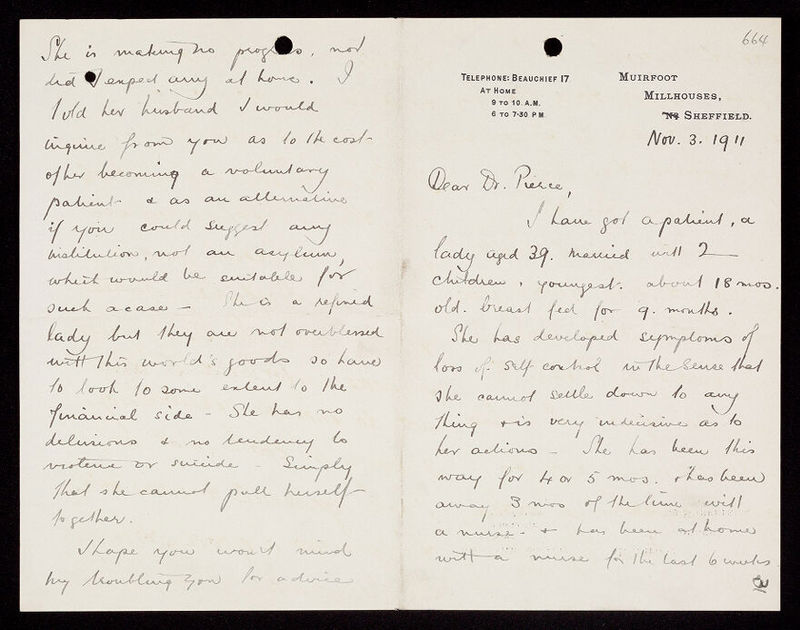 664
TELEPHONE: BEAUCHIEF 17
AT HOME
9 TO 10 A.M.
6 TO 7-30 P M
MUIRFOOT
MILLHOUSES,
SHEFFIELD.
Nov. 3. 1911
Dear Dr. Pierce,
I have got a patient, a
lady aged 39. married with 2
children, youngest. about 18 mos.
old. breast fed for 9. months.
She has developed symptoms of
loss of self control in the sense that
she cannot settle down to any
thing & is very indecisive as to
her actions - She has been this
way for 4 or 5 mos. & has been
away 3 mos of the time with
a nurse - & has been at home
with a nurse for the last 6 weeks
She is making no progress, nor
did I expect any at home. I
told her husband I would
inquire from you as to the cost
of her becoming a voluntary
patient & as an alternative
if you could suggest any
institution, not an asylum,
which would be suitable for
such a case - She is a refined
lady but they are not overblessed
with this world's goods so have
to look to some extent to the
financial side - She has no
delusions & no tendency to
violence or suicide - Simply
that she cannot pull herself
together.
I hope you won't mind
my troubling you for advice